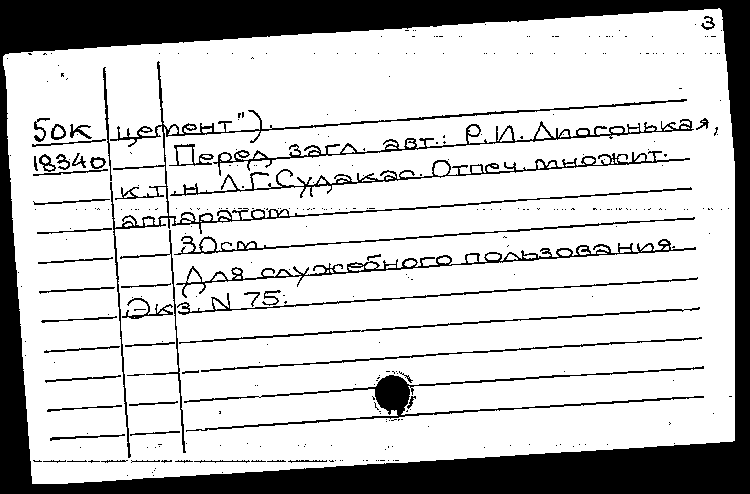 3
50К цемент").
18340 Перед загл. авт.: Р.И. Лиогонькая,
к.т.н. Л.Г. Судакас. Отпеч. множит.
аппаратом.
30см.
Для служебного пользования.
Экз. N 75.